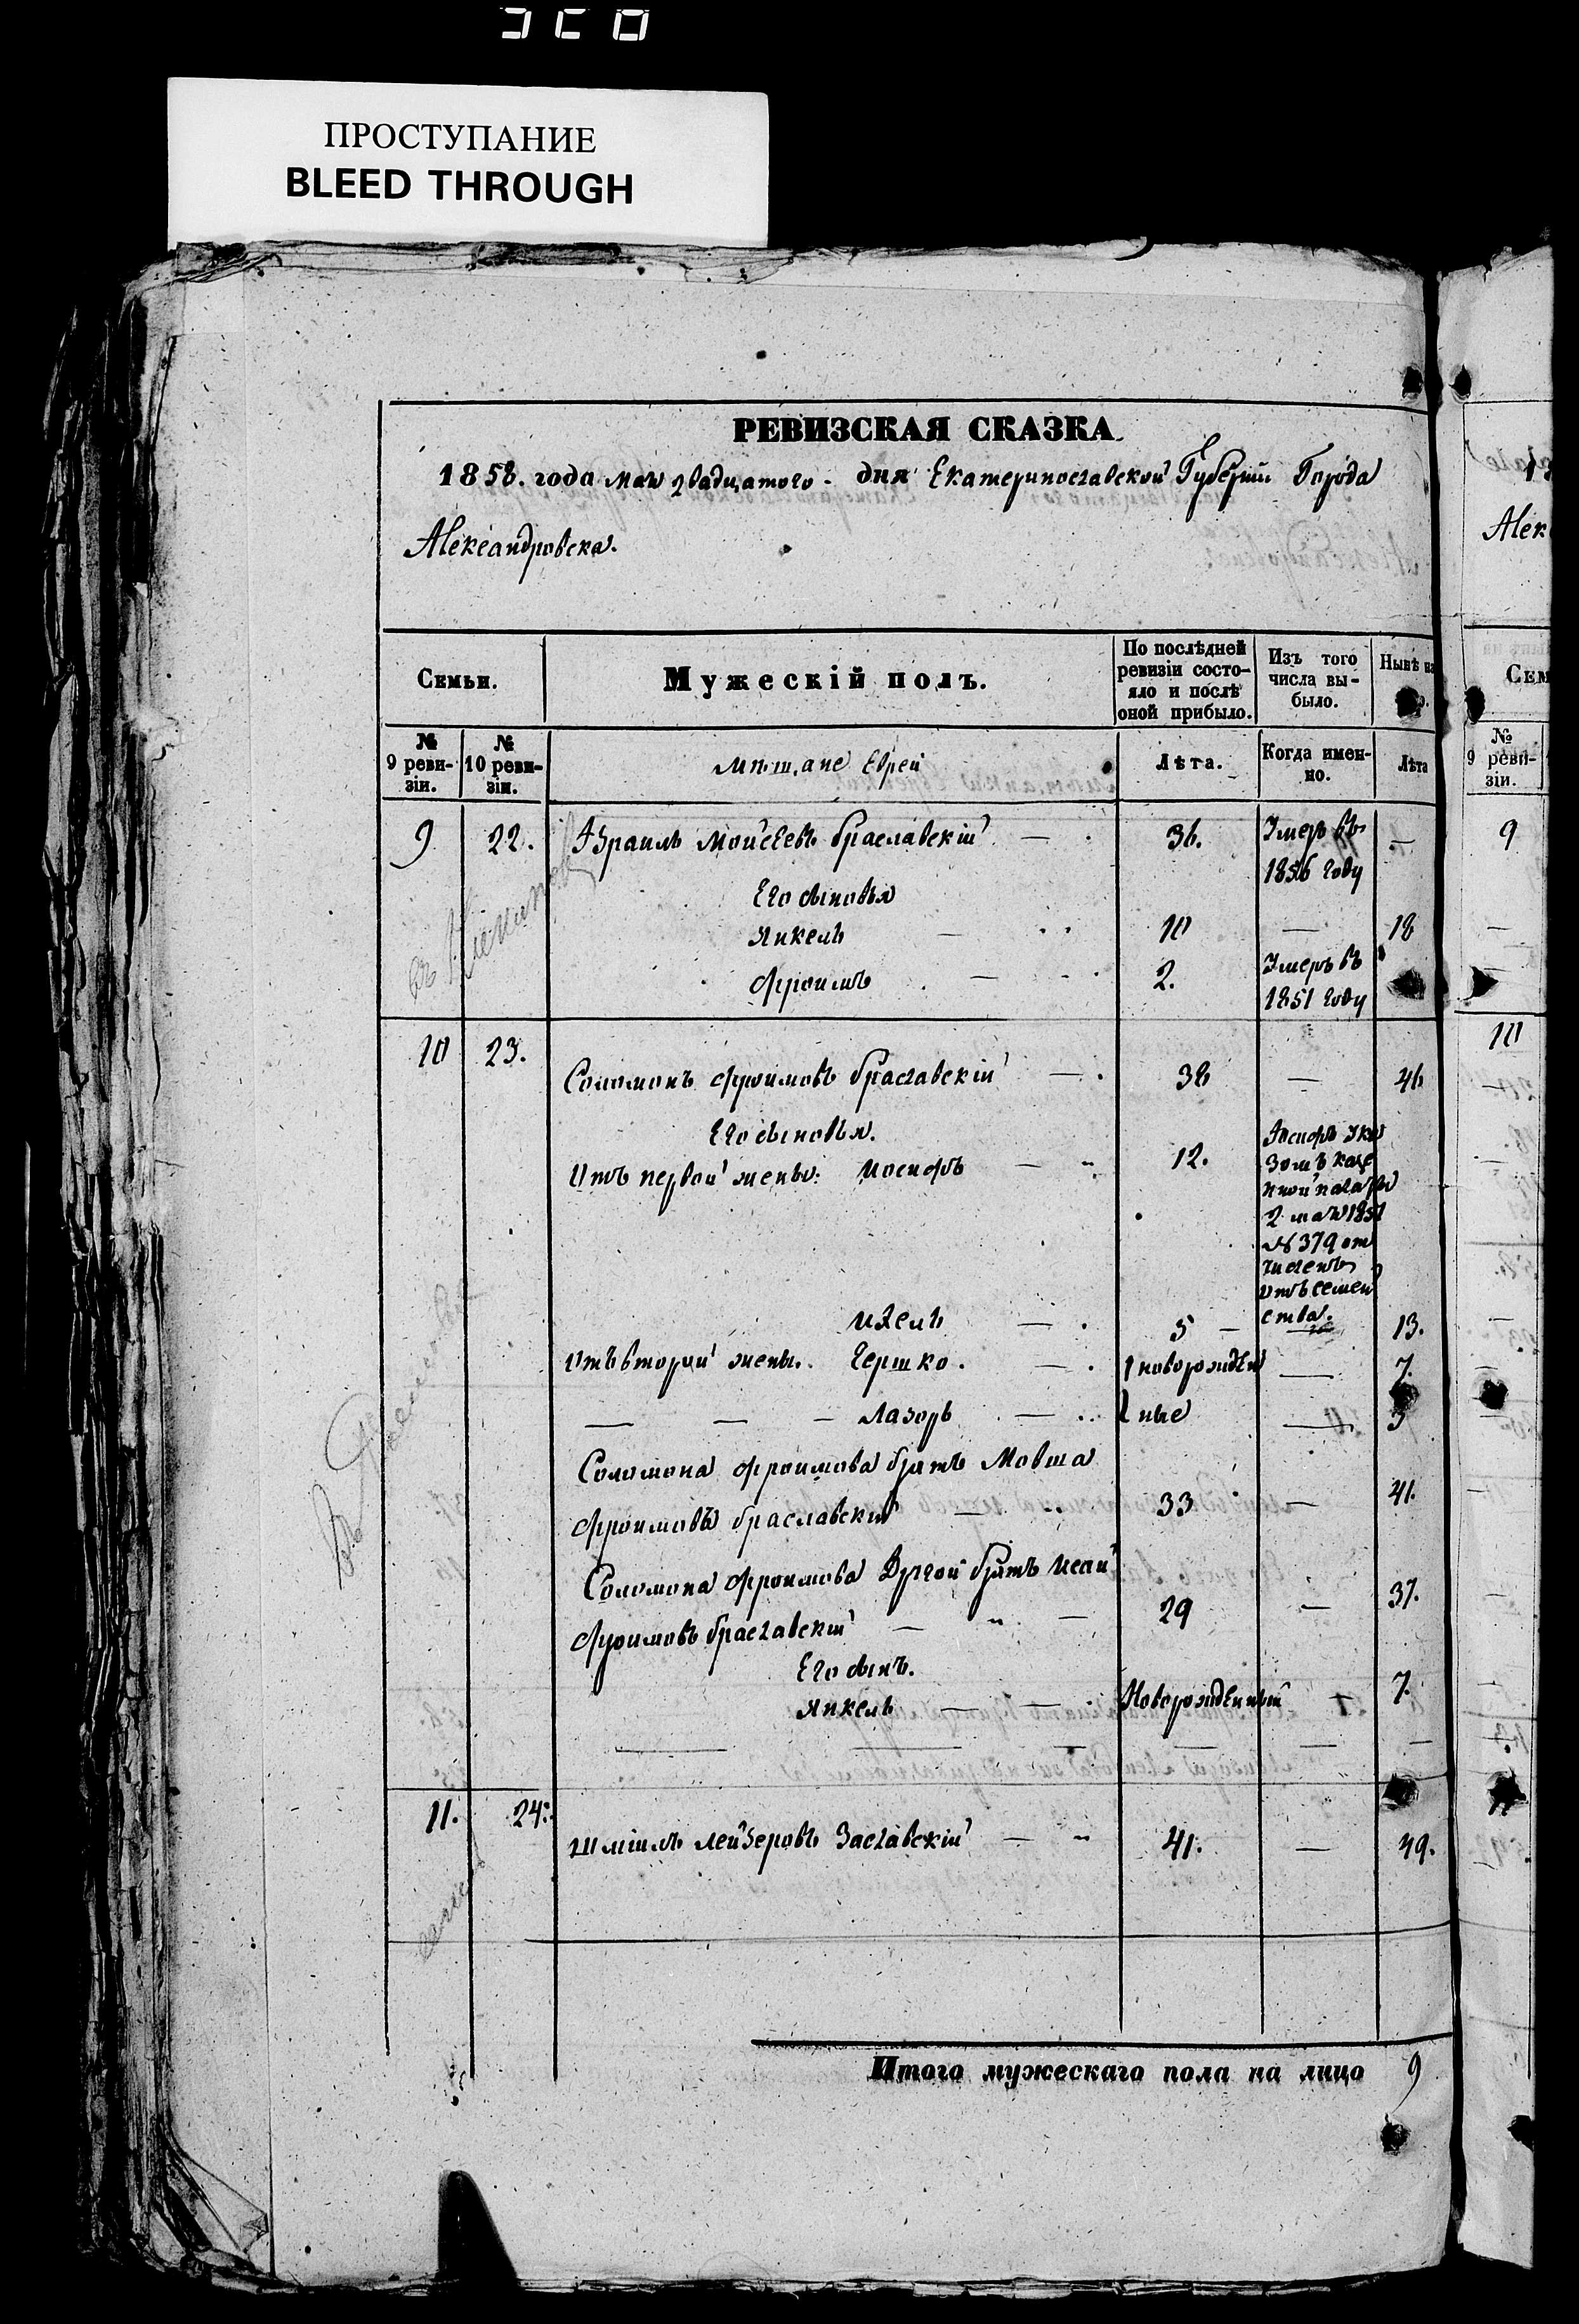 ПРОСТУПАНИЕ
BLEED THROUGH
РЕВИЗСКАЯ СКАЗКА
1858. года мая двадцатого - дня Екатеринославской Губерніи Города
Александровска.
Семьи.
Мужескій полъ.
По послѣдней ревизіи состояло и послѣ оной прибыло.
Изъ того числа выбыло.
Нынѣ на
№ 9 реви-зіи.
№ 10 реви-зіи.
мѣщане Евреи
Лѣта.
Когда имен-но.
Лѣта
9 22. Израиль Моисеевъ Браславскій — 36. Умеръ въ 1856 году —
Его сыновья
Янкель — 10 — 18
Фроимъ — 2. Умеръ въ 1851 году
10 23.
Соломонъ Фроимовъ Браславскій — 38 — 46
Его сыновья.
Отъ первой жены: Иосифъ — 12. Иосифъ ука
зомъ казе
нной палаты
2 мая 1851
№ 379 от
численъ
отъ семей
ства.
Ицель — 5 — 13.
Отъ второй жены. Гершко. — новорожден — 7.
— — — Лазорь — ные — 5
Соломона Фроимова братъ Мовша
Фроимовъ Браславскій — 33 — 41.
Соломона Фроимова Другой братъ Исай
Фроимовъ Браславскій — 29 — 37.
Его сынъ.
Янкель — Новорожденный — 7.
11. 24.
Шміиль Лейзеровъ Заславскій — 41. — 49.
Итого мужескаго пола на лицо 9
Алек
Сем
№ 9 реви-зіи.
9
10